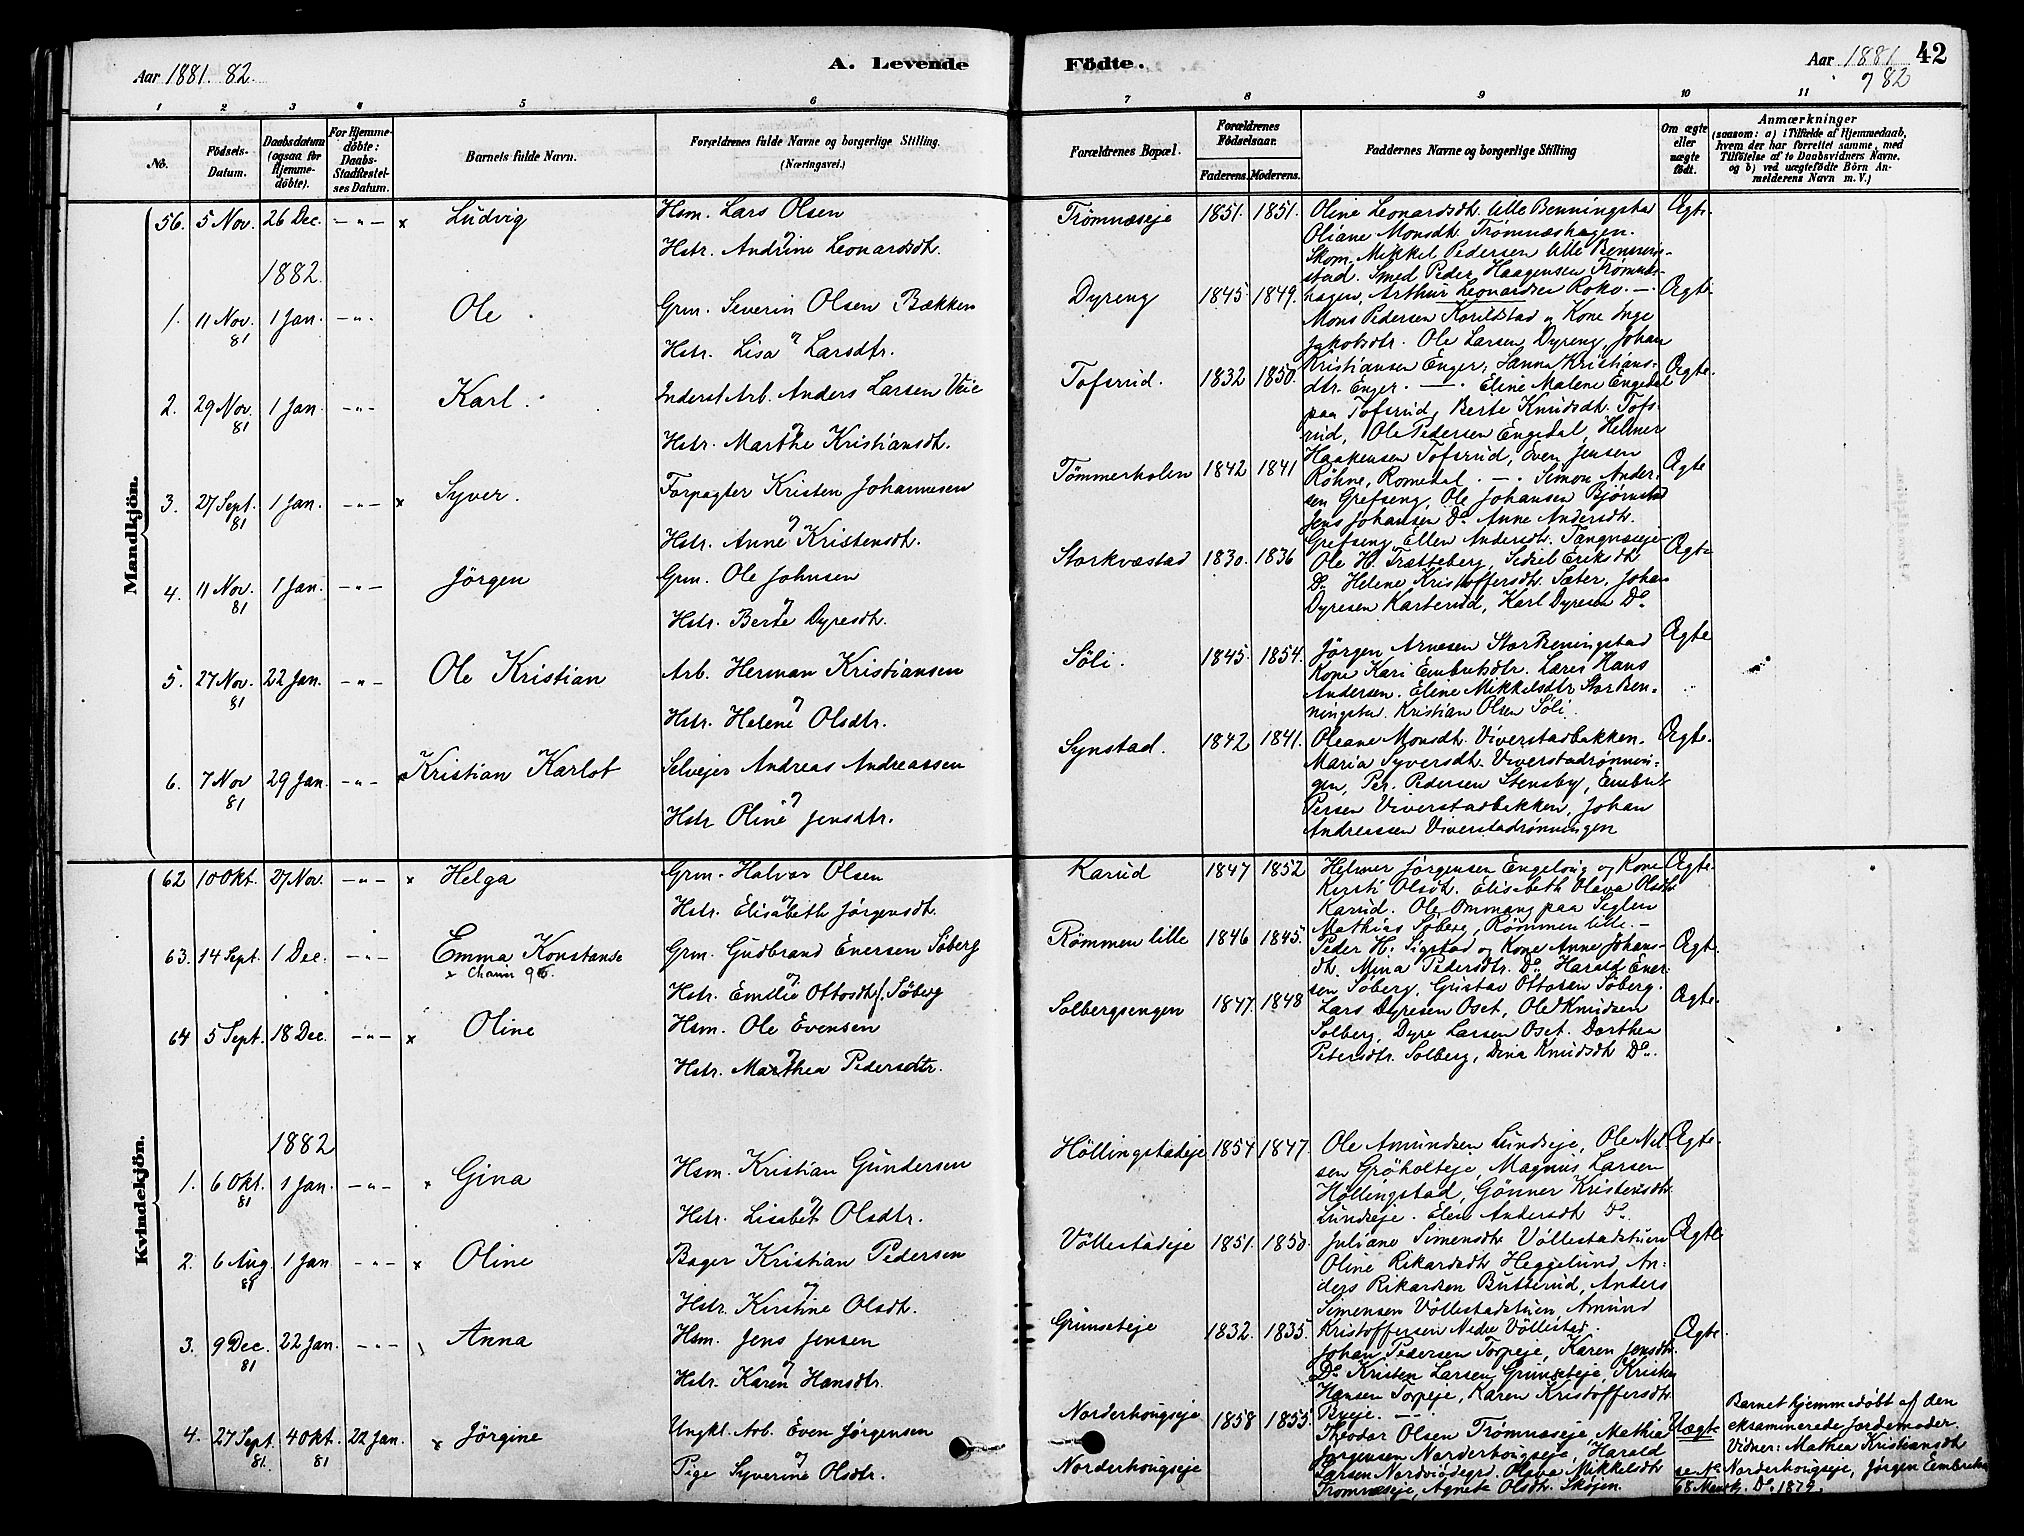 Aar 1881. 82.
A. Levende
Födte.
Aar 1881
82
42
1 2 3 4 5 6 7 8 9 10 11
No.
Födsels-
Datum.
Daabsdatum
(ogsaa for
Hjemme-
döbte).
For Hjemme-
döbte:
Daabs-
Stadfæstel-
ses Datum.
Barnets fulde Navn.
Forældrenes fulde Navne og borgerlige Stilling.
(Næringsvei.)
Forældrenes Bopæl.
Forældrenes
Födselsaar.
Faderens. Moderens.
Faddernes Navne og borgerlige Stilling
Om ægte
eller
uægte
født.
Anmærkninger
(saasom: a) i Tilfælde af Hjemmedaab,
hvem der har forrettet samme, med
Tilföielse af to Daabsvidners Navne,
og b) ved uægtefödte Börn An-
melderens Navn m. V.)
Mandkjön.
56. 5 Nov. 26 Dec. -"- x Ludvig
Hsm. Lars Olsen
Hstr. Andrine Leonardsdt.
Trømnæseje 1851. 1851.
Oline Leonardsdt. Lille Benningstad
Oliane Monsdt. Trømnæshagen.
Skom. Mikkel Pedersen Lille Bennin-
stad. Smed Peder Haagensen Trømnæs-
hagen, Arthur Leonardsen Roko. —
Ægte.
1882.
1. 11 Nov. 81 1 Jan. -"- Ole
Grm. Severin Olsen Bækken
Hstr. Lisa Larsdtr.
Dyreng 1845 1849.
Mons Pedersen Karildstad og Kone Inge
Jakobsdtr. Ole Larsen Dyreng, Johan
Kristiansen Enger, Sanna Kristians-
dtr. Enger. —
Ægte.
2. 29 Nov. 81 1 Jan. -"- Karl.
Inderst Arb. Anders Larsen Vie
Hstr. Marthe Kristiansdt.
Tofsrud. 1832 1850.
Eline Malene Engedal
paa Tofsrud, Berte Knudsdt. Tofs-
rud, Ole Pedersen Engedal, Helmer
Haakensen Tofsrud, Even Jensen
Røhne, Romedal. —
Ægte.
3. 27 Sept. 81 1 Jan. -"- x Syver.
Forpagter Kristen Johannesen
Hstr. Anne Kristensdt.
Tømmerholen 1842 1841
Simon Ander-
sen Grefseng, Ole Johansen Bjørnstad
Jens Johansen Do. Anne Andersdt.
Grefseng Ellen Andersdt. Tangnæseje
Ægte
4. 11 Nov. 81 1 Jan. -"- Jörgen
Grm. Ole Johnsen
Hstr. Berte Dyresdt.
Storkvæstad 1830. 1836
Ole H. Trætteberg, Sidsel Eriksdt.
Do. Helene Kristoffersdt. Sæter, Johan
Dyresen Karterud, Karl Dyresen Do.
Ægte
5. 27 Nov. 81 22 Jan. -"- Ole Kristian
Arb. Herman Kristiansen
Hstr. Helene Olsdtr.
Söli. 1845. 1854.
Jørgen Arnesen Stor Benningstad
Kone Kari Embretsdtr. Lærer Hans
Andersen. Eline Mikkelsdtr Stor Ben-
ningstad. Kristian Olsen Söli.
Ægte
6. 7 Nov 81 29 Jan. -"- x Kristian Karlot
Selvejer Andreas Andreassen
Hstr Oline Jensdtr.
Synstad. 1842 1841.
Oleane Monsdt. Viverstadbakken.
Maria Syversdt. Viverstadrønnin-
gen, Per. Pedersen Stensby, Embret
Persen Viverstadbakken, Johan
Andreassen Viverstadrønningen
Ægte.
Kvindekjön.
62 10 Okt. 27 Nov. -"- x Helga
Grm. Halvor Olsen
Hstr. Elisabeth Jørgensdt.
Karud 1847 1852
Helmer Jørgensen Engelaug og Kone
Kersti Olsdt. Elisabeth Olava Olsdt.
Karud. Ole Ommang paa Seglen
Mathias Soberg, Rømmen lille. —
Ægte.
63. 14 Sept. 1 Dec. -"- Emma Konstanse
Grm. Gudbrand Enersen Söberg
Hstr. Emilie Ottosdt. Söberg
Rømmen lille 1846 1845.
Peder H. Sigstad og Kone Anne Johans-
dt. Mina Pedersdtr. Do. Harald Ener-
sen Söberg, Gustav Ottosen Söberg.
Ægte.
64 5 Sept. 18 Dec. -"- x Oline
Hsm. Ole Evensen
Hstr. Marthea Pedersdtr.
Solbergsengen 1847. 1848
Lars Dyresen Oset, Ole Knudsen
Solberg, Dyre Larsen Oset. Dorthea
Petersdtr. Solberg, Dina Knudsdt. Do.
Ægte.
1882
1. 6 Okt. 81 1 Jan. -"- x Gina
Hsm. Kristian Gundersen
Hstr. Lisabet Olsdtr.
Höllingstadeje 1854 1847.
Ole Amundsen Lundseje, Ole Nil-
sen Gröholteje, Magnus Larsen
Höllingstad, Gönner Kristensdt.
Lundseje. Elen Andersdt. Do.
Ægte.
2. 6 Aug 81 1 Jan -"- x Oline
Bager Kristian Pedersen
Hstr. Kirstine Olsdt.
Völlestadeje 1851. 1850.
Juliane Simensdt. Völlestadstuen
Oline Rikardsdt. Heggelund, An-
ders Rikardsen Butterud, Anders
Simensen Völlestadstuen, Amund
Kristoffersen Nedre Völlestad.
Ægte
3. 9 Dec. 81 22 Jan. -"- Anna
Hsm. Jens Jensen
Hstr. Karen Hansdtr.
Grimseteje 1832. 1835.
Johan Pedersen Torpeje, Karen Jensdt.
Do. Kristen Larsen Grimseteje, Kristen
Hansen Torpeje, Karen Kristoffersdt.
Byeje. —
Ægte
4. 27 Sept. 81. 4 Okt. 81 22 Jan. x Jörgine
Ungkl. Arb. Even Jørgensen
Pige Syverine Olsdtr.
Norderhougseje 1858 1855.
Norderhougseje
Theodor Olsen Trømnæseje, Mathia
Jørgensen Norderhougseje, Harald
Larsen Nordviødegrd. Olava Mikkelsdt.
Trømnæseje, Agnete Olsdt. Skøjen.
Uægte
se No
68 Mandk.
Barnet hjemmedøbt af den
eksaminerede Jordemoder.
Vidner: Mathea Kristiansdt.
Norderhougseje, Jørgen Embretsen
Do. 1879.